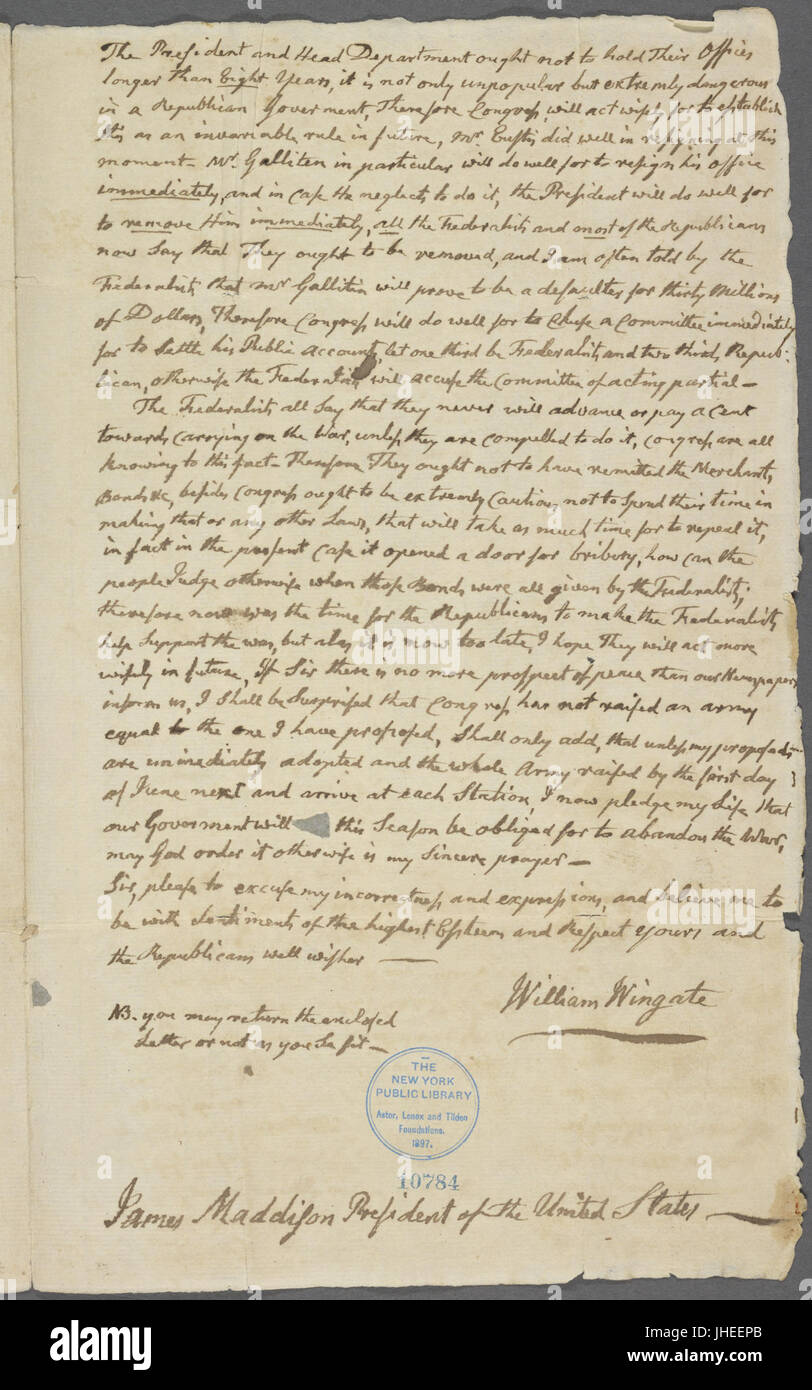 The President and Head Department ought not to hold Their Offices
longer than Eight Years, it is not only unpopular but extremly dangerous
in a Republican Goverment, Therefore Congress, will act wisely for to establish
this as an invariable rule in future, Mr. Eustis did well in resigning at this
moment - Mr. Galliten in particular will do well for to resign his office
immediately, and in case He neglects to do it, the President will do well for
to remove Him immediately, all the Federalists and most of the Republicans
now Say that They ought to be removed, and I am often told by the
Federalists that Mr Gallitin will prove to be a defaulter for thirty Millions
of Dollars, Therefore Congress will do well for to Chuse a Committee immediately
for to Settle his Public Accounts, let one third be Federalists and two thirds Repub-
lican, otherwise the Federalists will accuse the Committee of acting partial -
The Federalists all Say that they never will advance or pay a Cent
towards Carrying on the War, unless they are compelled to do it, Congress are all
knowing to this fact - Therefore They ought not to have remitted the Merchants
Bonds &c, besides Congress ought to be extremly Cautious not to Spend their time in
making that or any other Laws, that will take as much time for to repeal it,
in fact in the present Case it opened a door for bribery, how can the
people Judge otherwise when those Bonds were all given by the Federalists;
therefore now was the time for the Republicans to make the Federalists
help Support the war, but alas it is now too late, I hope They will act more
wisely in future, If Sir there is no more prospect of peace than our Newspapers
inform us, I Shall be Surprised that Congress has not raised an army
equal to the one I have proposed, Shall only add, that unless my proposals
are immediately adopted and the whole Army raised by the first day
of June next and arrive at each Station, I now pledge my Life that
our Goverment will this Season be obliged for to abandon the War,
may God order it otherwise is my Sincere prayer -
Sir, please to excuse my incorrectness and expressions, and believe me to
be with Sentiments of the highest Esteem and Respect Yours and
the Republicans well wisher -
William Wingate
NB. you may return the enclosed
Letter or not as you Se fit -
THE
NEW YORK
PUBLIC LIBRARY
Astor, Lenox and Tilden
Foundations.
1897.
10784
James Maddison President of the United States -
alamy
Image ID: JHEEPB
www.alamy.com